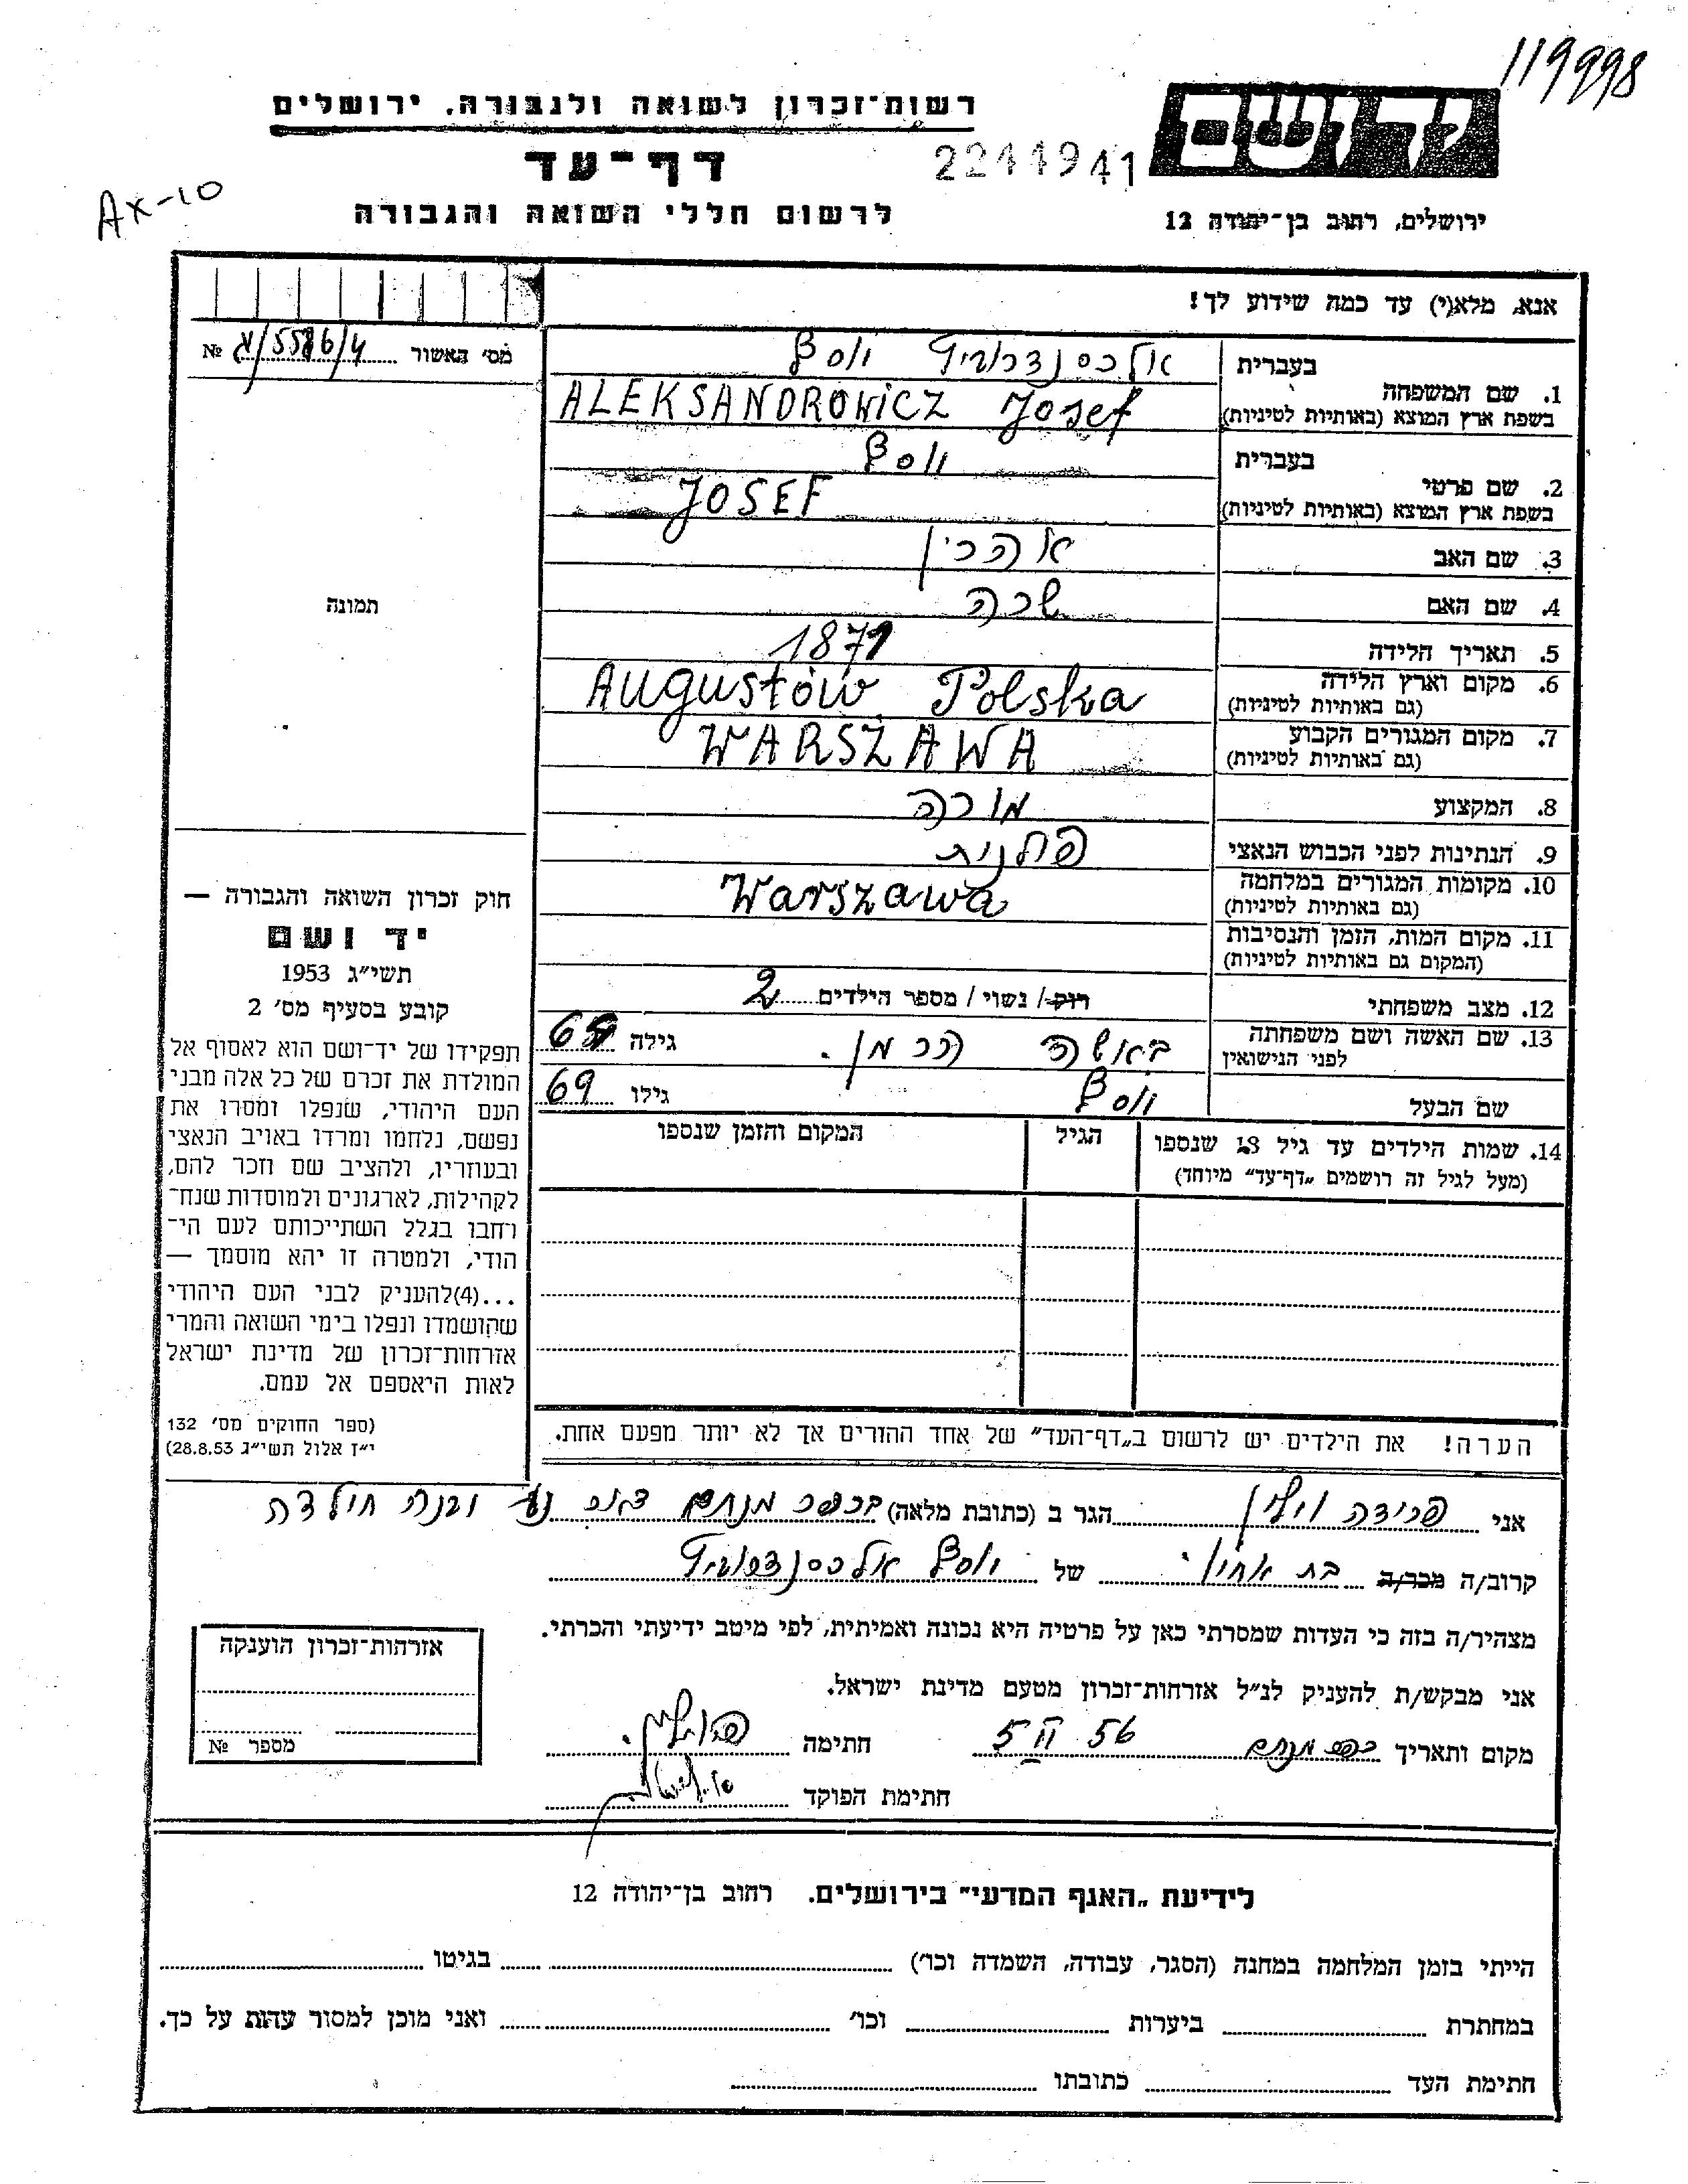 119998
רשות־זכרון לשואה ולגבורה, ירושלים
יד ושם
דף־עד
2244941
AX-10
לרשום חללי השואה והגבורה
ירושלים, רחוב בן־יהודה 12
אנא, מלא(י) עד כמה שידוע לך!
מס׳ האשור № 5586/4
1. שם המשפחה בעברית אלכסנדרוביץ יוסף
בשפת ארץ המוצא (באותיות לטיניות) ALEKSANDROWICZ Josef
2. שם פרטי בעברית יוסף
בשפת ארץ המוצא (באותיות לטיניות) JOSEF
3. שם האב אהרין
4. שם האם שרה
5. תאריך הלידה 1871
6. מקום וארץ הלידה (גם באותיות לטיניות) Augustów Polska
7. מקום המגורים הקבוע (גם באותיות לטיניות) WARSZAWA
8. המקצוע מורה
9. הנתינות לפני הכבוש הנאצי פולנית
10. מקומות המגורים במלחמה (גם באותיות לטיניות) Warszawa
11. מקום המות, הזמן והנסיבות (המקום גם באותיות לטיניות)
12. מצב משפחתי רווק / נשוי / מספר הילדים 2
13. שם האשה ושם משפחתה לפני הנישואין באשה הרמן. גילה
שם הבעל יוסף גילו 69
14. שמות הילדים עד גיל 18 שנספו הגיל המקום והזמן שנספו
(מעל לגיל זה רושמים „דף־עד״ מיוחד)
הערה! את הילדים יש לרשום ב„דף־העד״ של אחד ההורים אך לא יותר מפעם אחת.
תמונה
חוק זכרון השואה והגבורה —
יד ושם
תשי״ג 1953
קובע בסעיף מס׳ 2
תפקידו של יד־ושם הוא לאסוף אל
המולדת את זכרם של כל אלה מבני
העם היהודי, שנפלו ומסרו את
נפשם, נלחמו ומרדו באויב הנאצי
ובעוזריו, ולהציב שם וזכר להם,
לקהילות, לארגונים ולמוסדות שנח־
רחבו בגלל השתייכותם לעם הי־
הודי, ולמטרה זו יהא מוסמך —
...(4)להעניק לבני העם היהודי
שהושמדו ונפלו בימי השואה והמרי
אזרחות־זכרון של מדינת ישראל
לאות היאספם אל עמם.
(ספר החוקים מס׳ 132
י״ז אלול תשי״ג 28.8.53)
אני פרידה וילין הגר ב (כתובת מלאה) בכפר מנחם דאר נע וגנה חולדה
קרוב/ה מכר/ה בת אחיו של יוסף אלכסנדרוביץ
מצהיר/ה בזה כי העדות שמסרתי כאן על פרטיה היא נכונה ואמיתית, לפי מיטב ידיעתי והכרתי.
אני מבקש/ת להעניק לנ״ל אזרחות־זכרון מטעם מדינת ישראל.
מקום ותאריך כפר מנחם 5 II 56 חתימה
חתימת הפוקד
אזרחות־זכרון הוענקה
מספר №
לידיעת „האגף המדעי״ בירושלים. רחוב בן־יהודה 12
הייתי בזמן המלחמה במחנה (הסגר, עבודה, השמדה וכו׳) בגיטו
במחתרת ביערות וכו׳ ואני מוכן למסור עדות על כך.
חתימת העד כתובתו